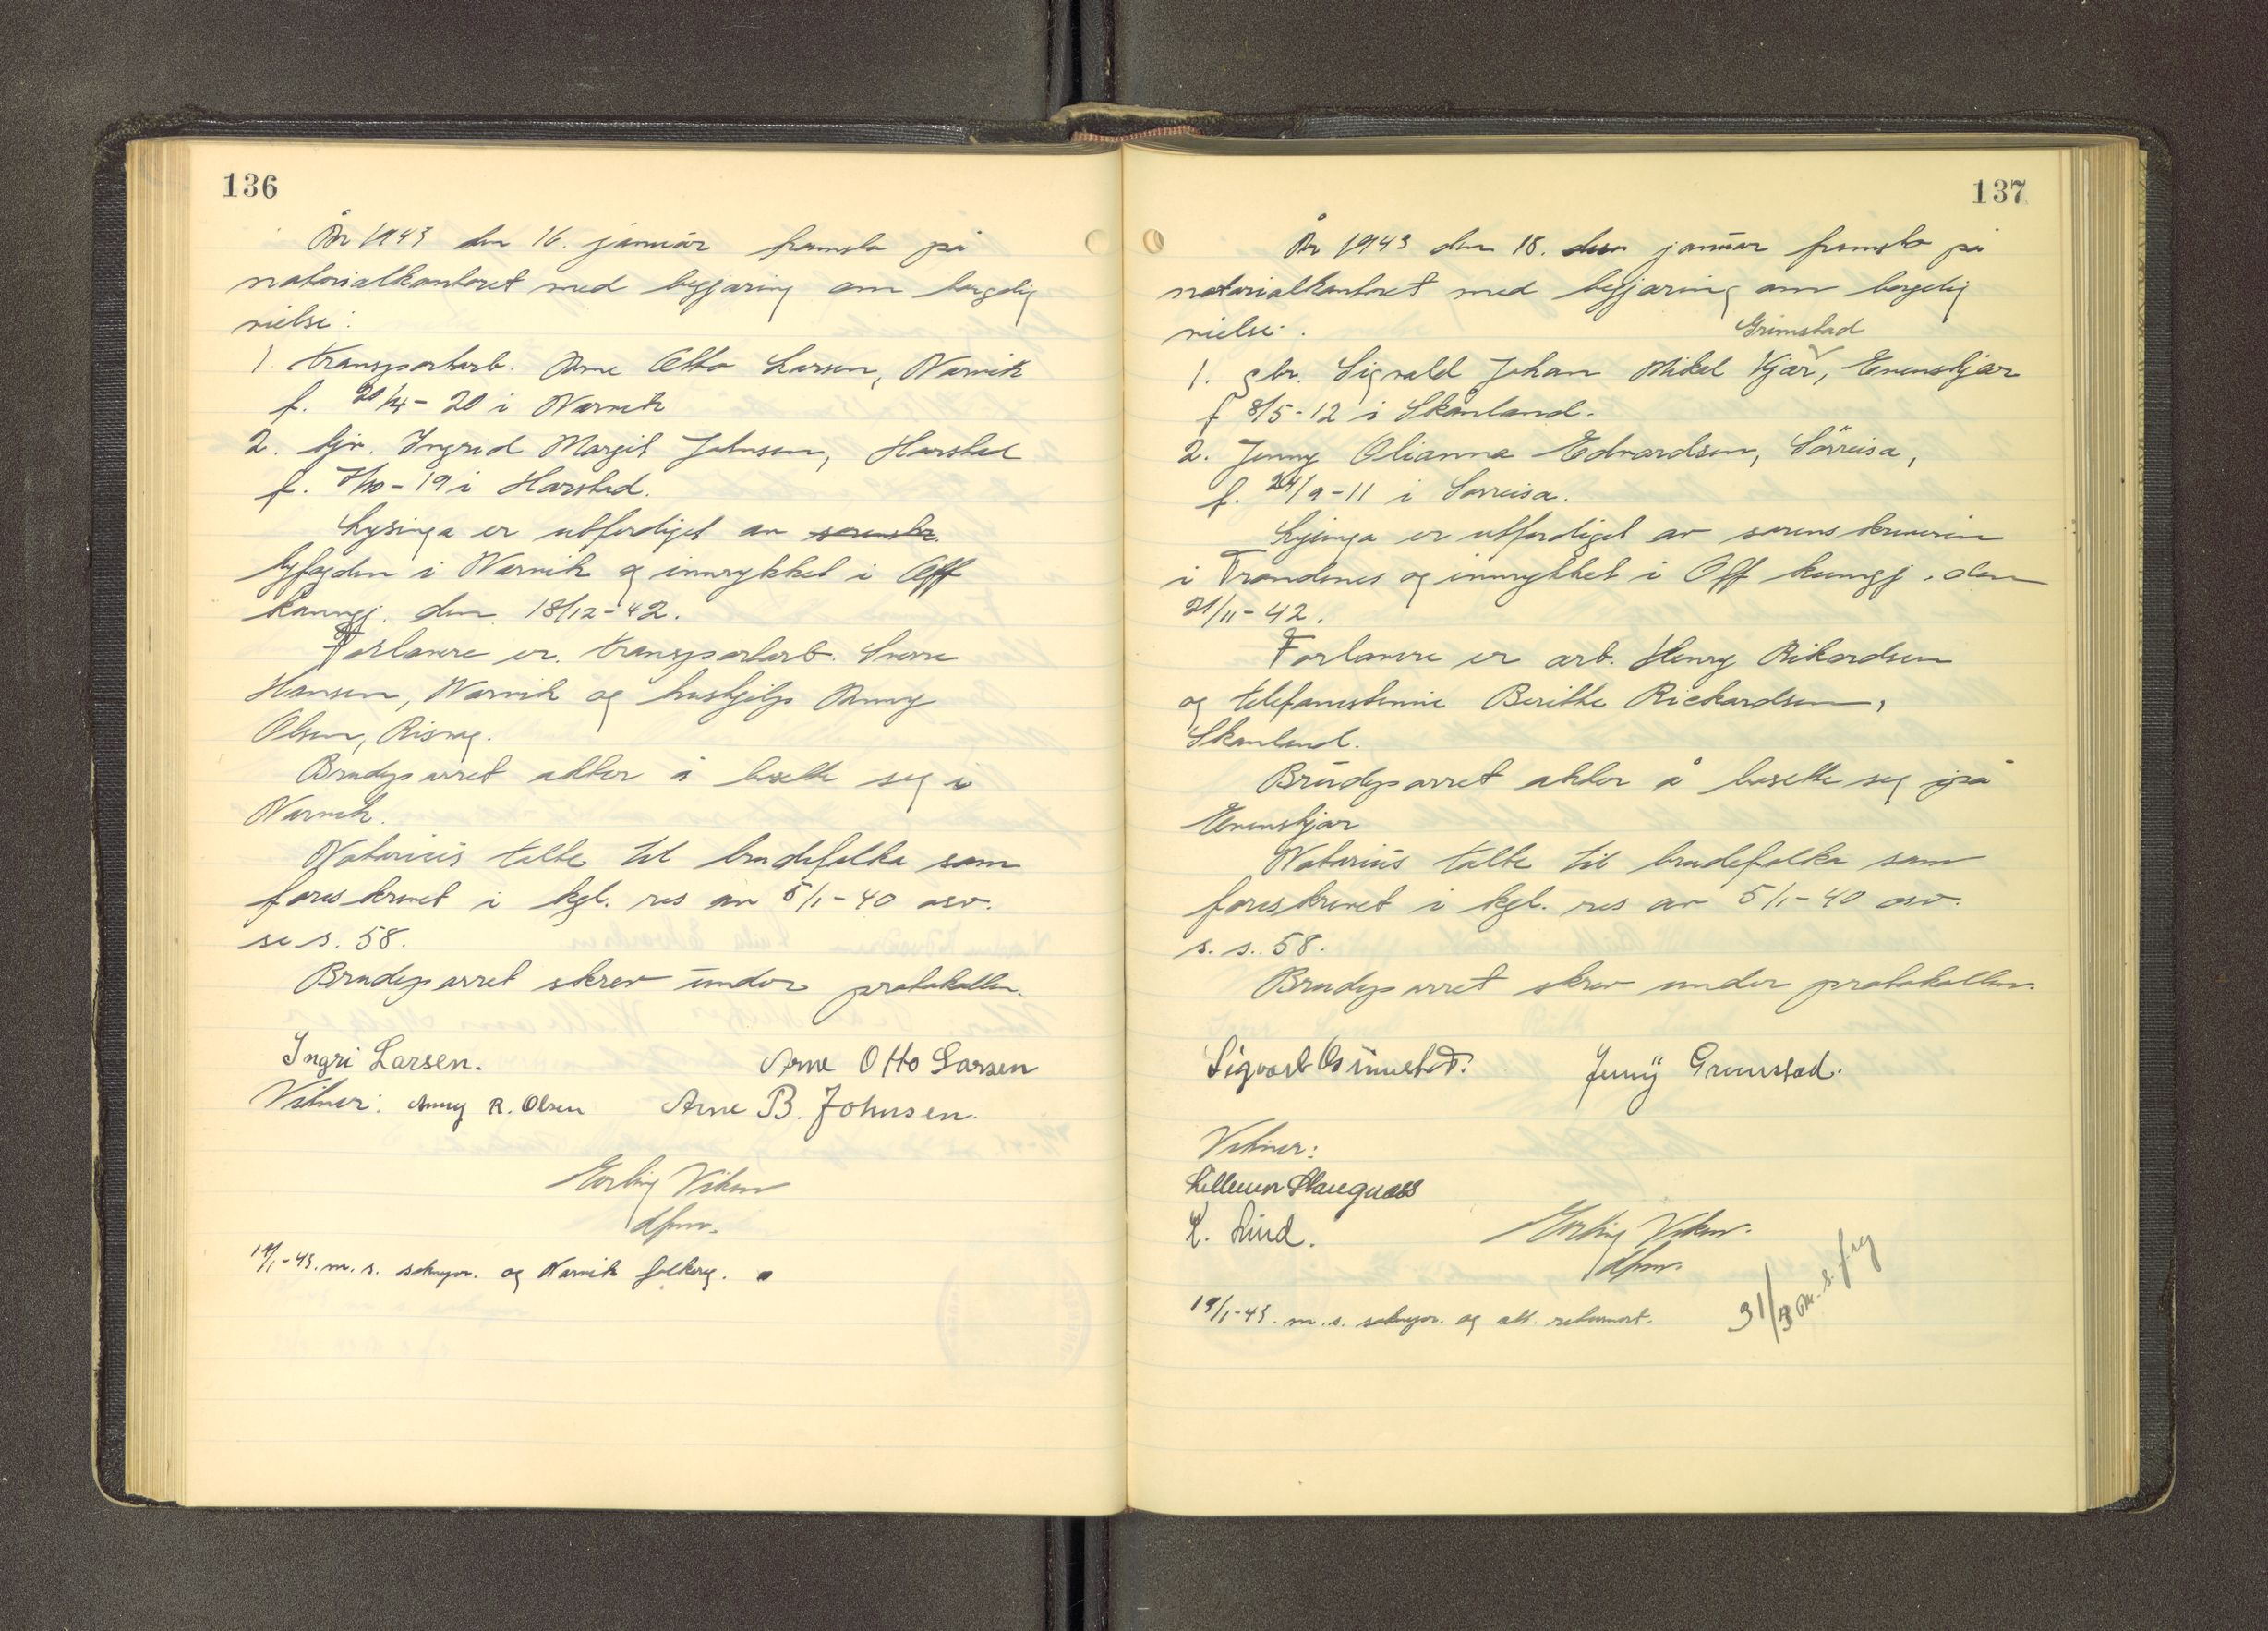 136
År 1943 den 16. januar framsto på
notorialkontoret med begjæring om borgelig
vielse:
1. transportarb. Arne Otto Larsen, Narvik
f. 20/4 - 20 i Narvik
2. Ingrid Margit Johnsen, Harstad
f. 7/10 - 19 i Harstad.
Lysinga er utferdiget av sorenskr.
byfogden i Narvik og innrykket i Off
kunngj. den 18/12 - 42.
Forlovere er. transportarb. Sverre
Hansen, Narvik og hushjelp Anny
Olsen,
Brudeparret akter å bosette seg i
Narvik.
Notarius talte til brudefolka som
foreskrevet i kgl. res av 5/1 - 40 osv.
se s. 58.
Brudeparret skrev under protokollen.
Ingri Larsen. Arne Otto Larsen
Vitner: Anny R. Olsen Arne B. Johnsen.
Erling Viken
dfm.
19/1-43. m. s. og Narvik folkereg.
137
År 1943 den 18. den januar framsto på
notorialkontoret med begjæring om borgelig
vielse.
Grimstad
1. gbr. Sigvald Johan Mikal Kjær, Evenskjær
f 8/5 - 12 i Skånland.
2. Jenny Olianna Edvardsen, Sörreisa,
f. 24/9 - 11 i Sørreisa.
Lysinga er utferdiget av sorenskriveren
i Trondenes og innrykket i Off kunngj. den
21/11 - 42.
Forlovere er arb. Henry Rikardsen
og telefonistinne Berithe Rickardsen,
Skånland.
Brudeparret akter å bosette seg på
Evenskjær
Notarius talte til brudefolka som
foreskrevet i kgl. res av 5/1 - 40 osv.
s. s. 58.
Brudeparret skrev under protokollen.
Sigvart Grimstad. Jenny Grimstad.
Vitner:
Lillemor Haugnæss
K. Lind.
Erling Viken.
dfm.
19/1-43. m. s. og att. returnert.
31/3 m. s. freg